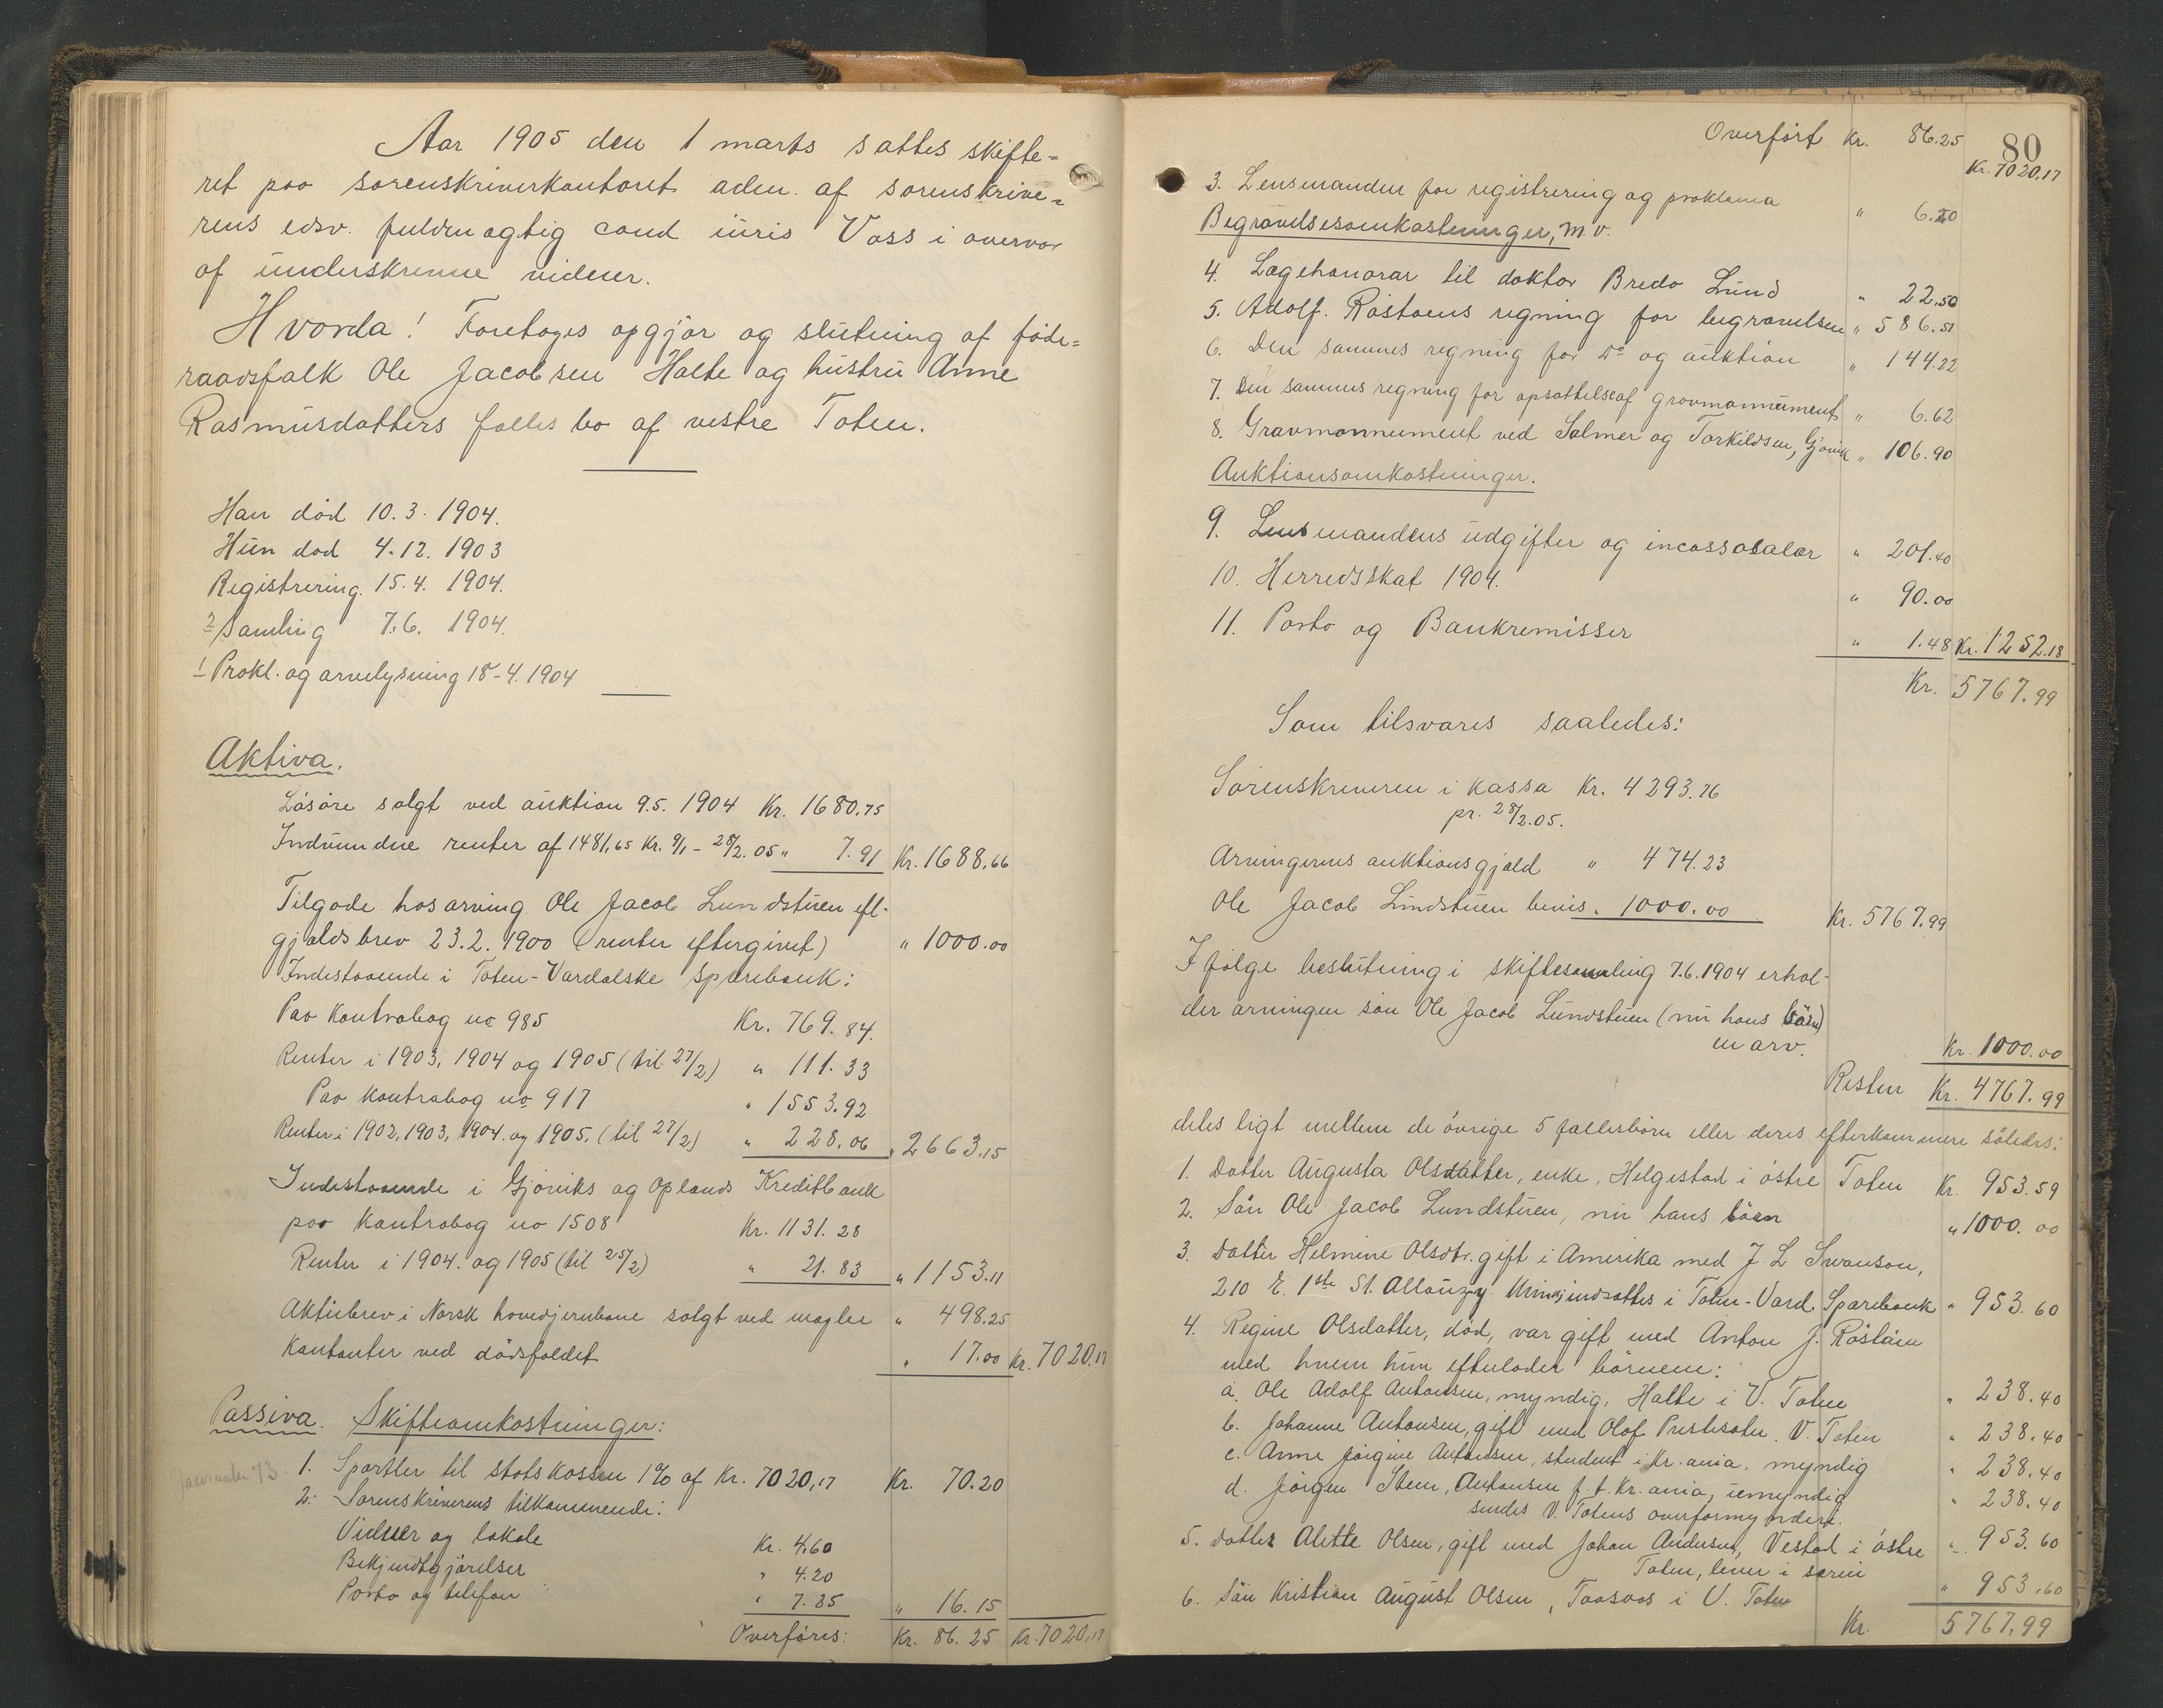 Aar 1905 den 1 marts sattes skifte-
ret paa sorenskriverkontoret adm. af sorenskrive-
rens edsv. fuldmægtig cand juris Voss i overvær
af underskrevne vidner.
Hvorda! Foretoges opgjør og slutning af føde-
raadsfolk Ole Jacobsen Halte og hustru Anne
Rasmusdatters fælles bo af vestre Toten.
Han død 10.3. 1904.
Hun død 4.12. 1903
Registrering. 15.4. 1904.
2 Samling 7.6. 1904.
1 Prokl. og arvelysning 18-4. 1904
Aktiva.
Løsøre solgt ved auktion 9.5. 1904 Kr. 1680.75
Indvundne renter af 1481,65 Kr. 9/1 - 28/2. 05 " 7.91 Kr. 1688,66
Tilgode hos arving Ole Jacob Lundstuen efl.
gjældsbrev 23.2. 1900 (renter eftergivet) " 1000.00
Indestaaende i Toten-Vardalske Sparebank:
Paa Kontrabog no 985 Kr. 769.84.
Renter i 1903, 1904 og 1905 (til 27/2) " 111.33
Paa kontrabog no 917 " 1553.92
Renter i 1902, 1903, 1904. og 1905. (til 27/2) " 228.06 " 2663.15
Indestaaende i Gjøviks og Oplands Kreditbank
paa Kontrabog no 1508 Kr. 1131.28
Renter i 1904. og 1905 (til 25/2) " 21.83 " 1153.11
Aktiebrev i Norsk hovedjernbane solgt ved megler " 498.25
Kontanter ved dødsfaldet " 17.00 Kr. 7020.17
Passiva. Skifteomkostninger:
1. Sportler til statskassen 1% af Kr. 7020,17 Kr. 70.20
2. Sorenskriverens tilkommende:
Vidner og lokale Kr. 4.60
Bekjendtgjørelser " 4.20
Porto og telefon " 7.35 " 16.15
Overføres: Kr. 86.25 Kr. 7020,17
80
Overført Kr. 86.25 Kr. 7020,17
3. Lensmanden for registrering og proklama " 6.30
Begravelsesomkostninger, m.v.
4. Lægehonorar til doktor Bredo Lund " 22.50
5. Adolf. Røstøens regning for begravelsen " 586.51
6. Den sammes regning for Do og auktion " 144.22
7. Den sammes regning for opsættelse af gravmonnument " 6.62
8. Gravmonnument ved Solmer og Torkildsen, Gjøvik " 106.90
Auktionsomkostninger.
9. Lensmandens udgifter og incassosalær " 201.40
10. Herredsskat 1904. " 90.00
11. Porto og Bankremisser " 1.48 Kr. 1252.18
Kr. 5767.99
Som tilsvares saaledes:
Sorenskriveren i kassa Kr. 4293.76
pr. 28/2.05.
Arvingernes auktionsgjæld " 474.23
Ole Jacob Lundstuen bevis " 1000.00 Kr. 5767.99
Ifølge beslutning i skiftesamling 7.6.1904 erhol-
der arvingen søn Ole Jacob Lundstuen (nu hans børn)
en arv. Kr. 1000.00
Resten Kr. 4767.99
deles ligt mellem de øvrige 5 fællesbørn eller deres efterkommere således:
1. Datter Augusta Olsdatter, enke, Helgestad i østre Toten Kr. 953.59
2. Søn Ole Jacob Lundstuen, nu hans børn " 1000.00
3. Datter Helmine Olsdtr. gift i Amerika med J. L Swanson,
210 E. 1ste St. indsættes i Toten-Vard. Sparebank " 953.60
4. Regine Olsdatter, død, var gift med Anton J. Røstøen
med hvem hun efterlader børnene:
a. Ole Adolf Antonsen, myndig, Halte i V. Toten " 238.40
b. Johanne Antonsen, gift med Olof Prestesæter. V. Toten " 238.40
c. Anne Jørgine Antonsen, student i Kr.ania. myndig " 238.40
d. Jørgen Stem, Antonsen f. t. Kr.ania, umyndig " 238.40
sendes V. Totens overformynderi.
5. Datter Alette Olsen, gift med Johan Andersen, Vestad i østre " 953.60
Toten, lever i særeie
6. Søn Kristian August Olsen, Taasaas i V. Toten " 953.60
Kr. 5767.99